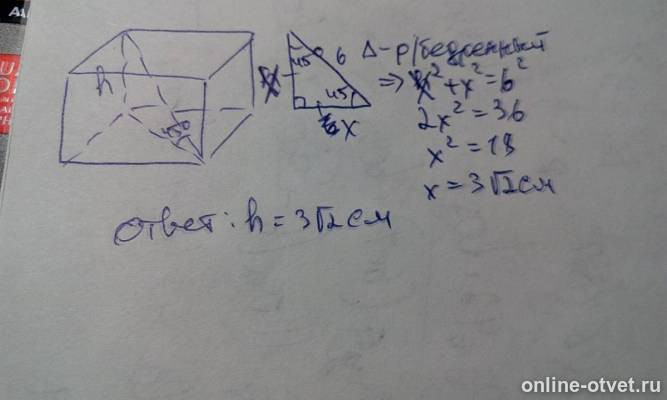 h
45°
x
45°
6
45
x
Δ - р/бедренный
⇒ x² + x² = 6²
2x² = 36
x² = 18
x = 3√2 см
ответ: h = 3√2 см
online-otvet.ru